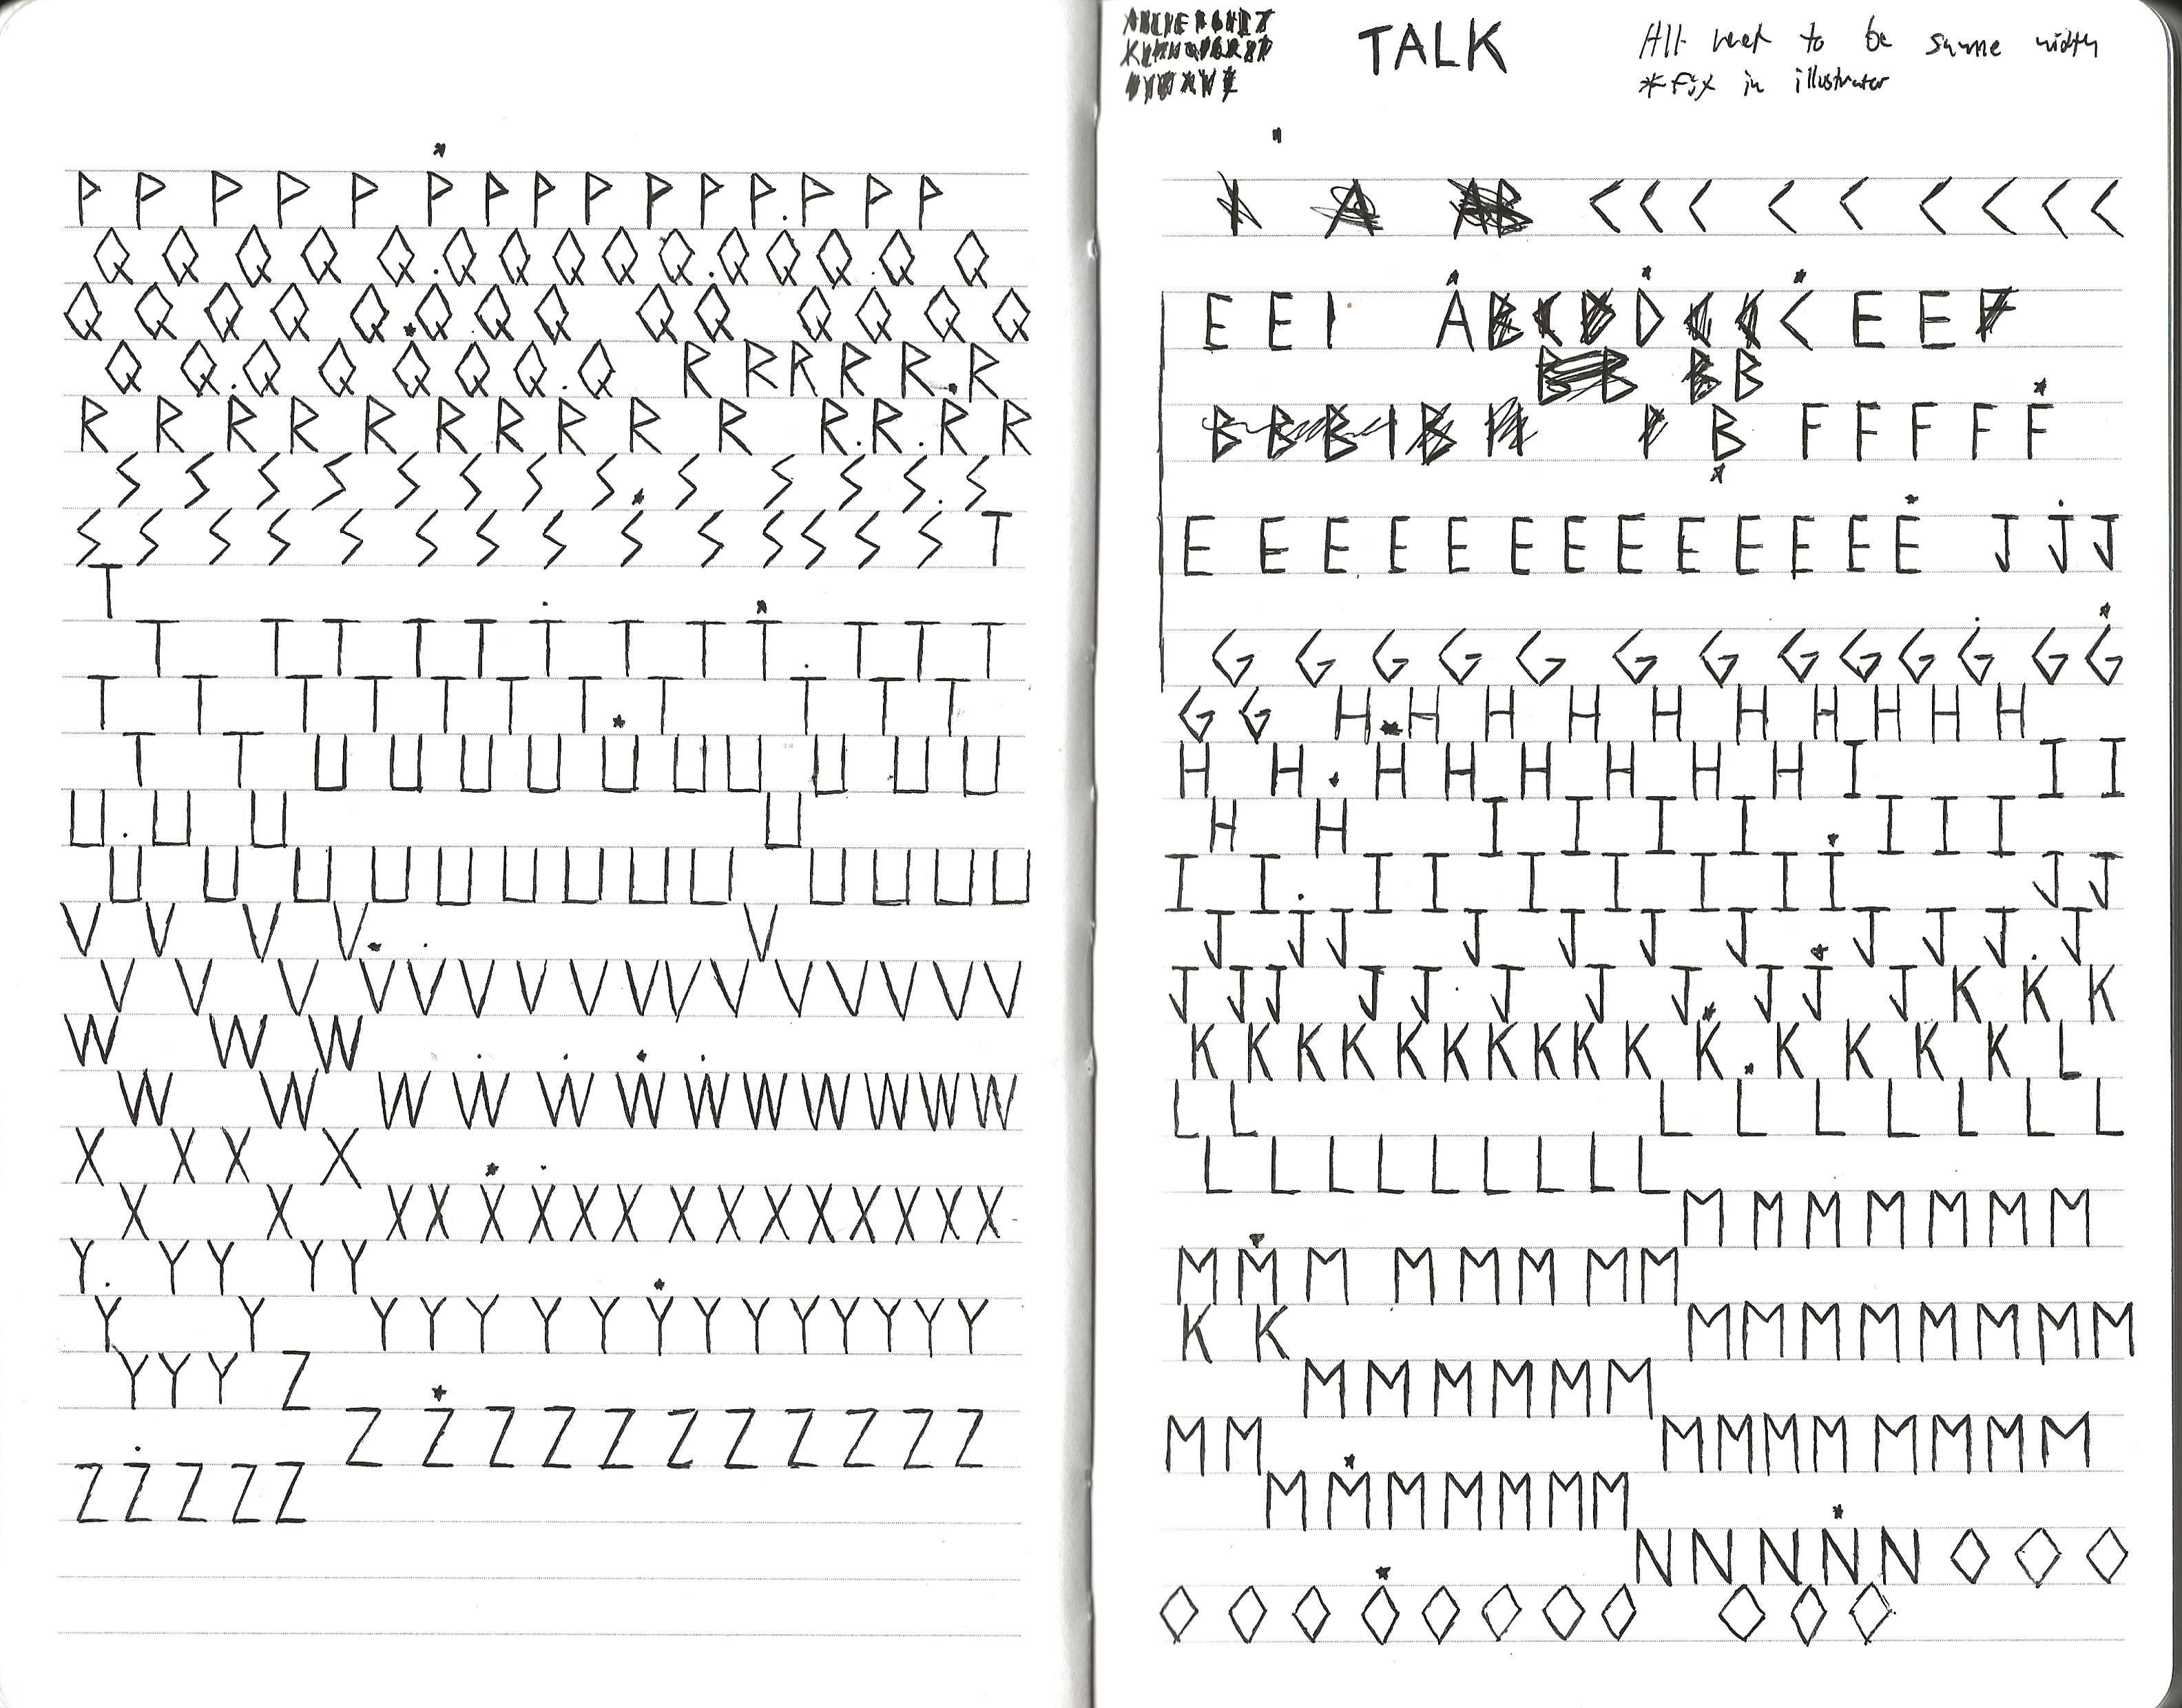 P P P P P P P P P P P P P P P
Q Q Q Q Q Q Q Q Q Q Q Q Q Q Q
Q Q Q Q Q Q Q Q Q Q Q Q Q Q
Q Q Q Q Q Q Q Q R R R R R R
R R R R R R R R R R R R R R
S S S S S S S S S S S S S
S S S S S S S S S S S S S S T
T
T T T T T T T T T T T T
T T T T T T T T T T T
T T U U U U U U U U U U
U U U U
U U U U U U U U U U U U U
V V V V V
V V V V V V V V V V V V V V V V
W W W
W W W W W W W W W W W W
X X X X
X X X X X X X X X X X X X X X X
Y Y Y Y Y
Y Y Y Y Y Y Y Y Y Y Y Y Y Y Y
Y Y Y Z
Z Z Z Z Z Z Z Z Z Z Z
Z Z Z Z Z
TALK
All need to be same width
*Fix in illustrator
C C C C C C C C C
E E I A D C E E
B
B F F F F F
E E E E E E E E E E E E E J J J
G G G G G G G G G G G G G
G G H H H H H H H H H H
H H H H H H H H I I I
H H I I I I I I I
I I I I I I I I I J J
J J J J J J J J J J J
J J J J J J J J J J J K K K
K K K K K K K K K K K K K K K L
L L L L L L L L L
L L L L L L L L L
M M M M M M M
M M M M M M M M
K K M M M M M M M M
M M M M M M
M M M M M M M M M M
M M M M M M M
N N N N N O O O
O O O O O O O O O O O